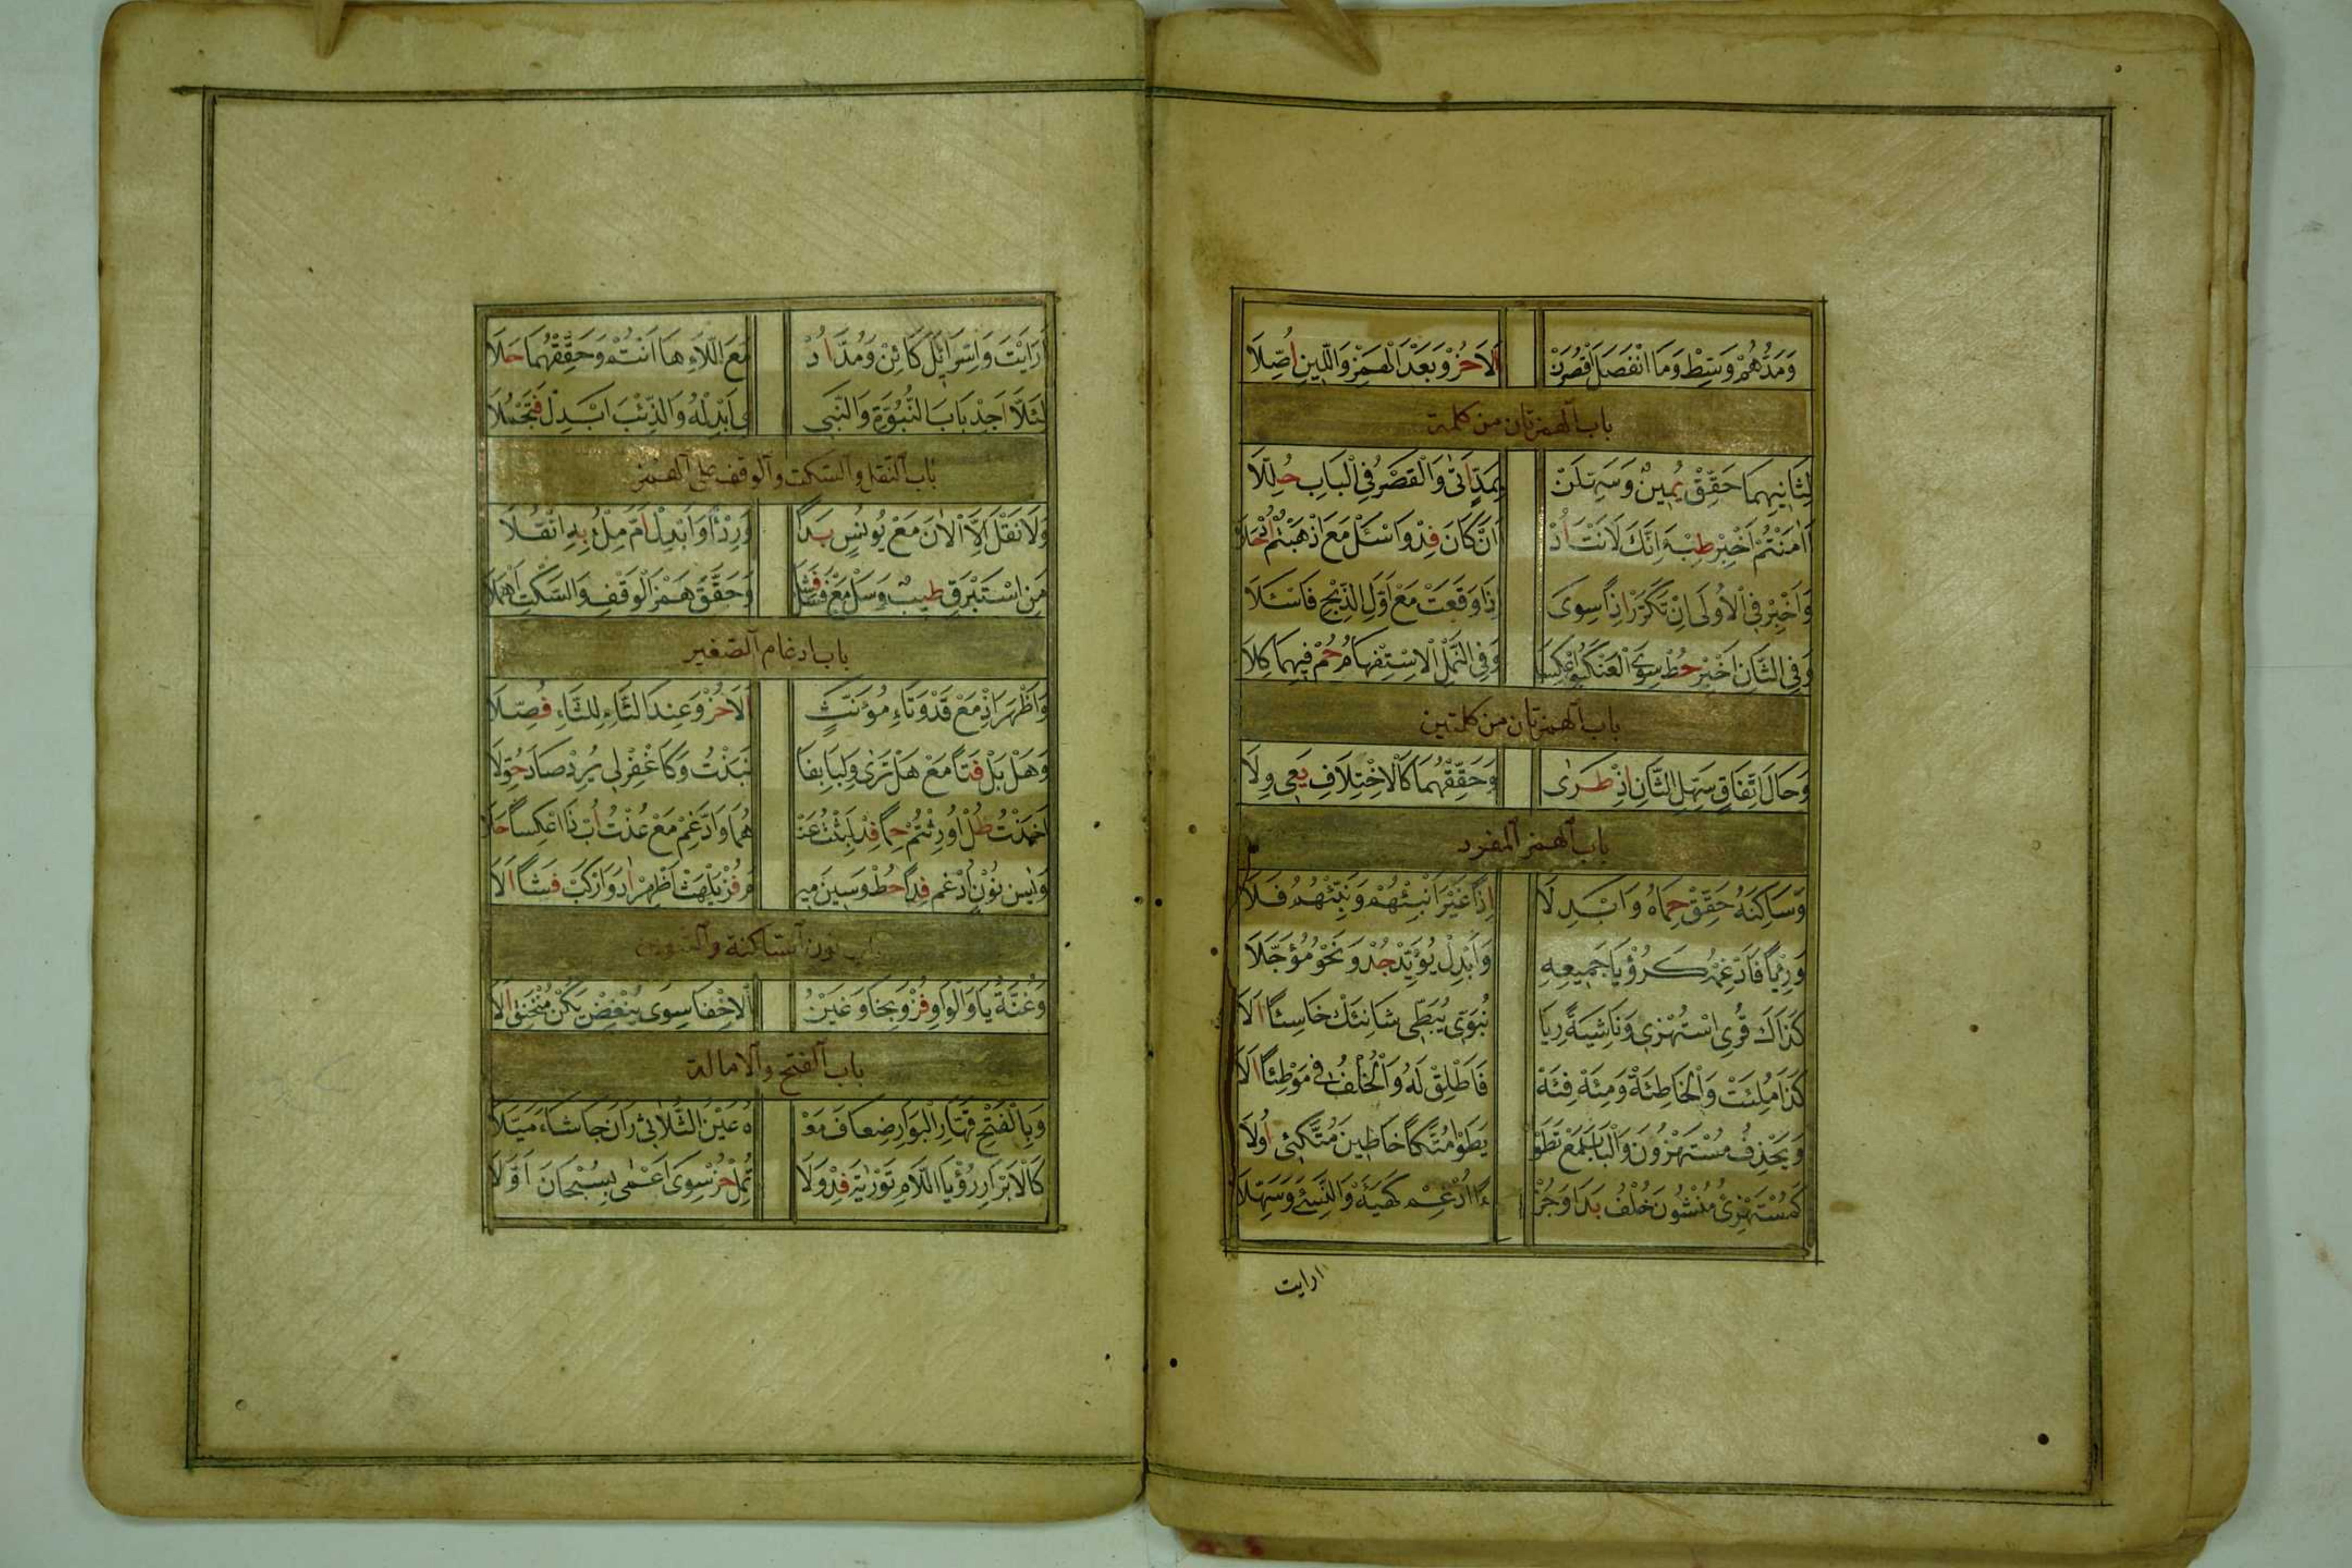 وَمَدُّهُمْ وَسِّطْ وَمَا انْفَصَلَ اقْصُرَنْ اَلَا حُزْ وَبَعْدَ الْهَمْزِ وَاللِّينِ اُصِّلَا
باب الهمزتان من كلمة
لِثَانِيهِمَا حَقِّقْ يَمِينٌ وَسَهِّلَنْ بِمَدٍّ اَتَى وَالْقَصْرُ فِي الْبَابِ حُلِّلَا
اَاٰمَنْتُمْ اَخْبِرْ طِبْ اَئِنَّكَ لَاَنْتَ اُدْ اَاَنْ كَانَ فِدْ وَاسْئَلْ مَعَ اذْهَبْتُمْ اُذْحَلَا
وَاَخْبِرْ فِي الْاُولَى اِنْ تَكَرَّرْ اِذًا سِوَى اِذَا وَقَعَتْ مَعْ اَوَّلِ الذِّبْحِ فَاسْئَلَا
وَفِي الثَّانِ اَخْبِرْ حُطْ سِوَى الْعَنْكَبُ اعْكِسَا وَفِي النَّمْلِ الْاِسْتِفْهَامُ حُمْ فِيهِمَا كِلَا
باب الهمزتان من كلمتين
وَحَالَ اتِّفَاقٍ سَهِّلِ الثَّانِ اِذْ طَرَى وَحَقِّقْهُمَا كَالْاِخْتِلَافِ يَعِي وِلَا
باب الهمز المفرد
وَسَاكِنَهُ حَقِّقْ حِمَاهُ وَاَبْدِلَا اِذًا غَيْرَ اَنْبِئْهُمْ وَنَبِّئْهُمُ فَلَا
وَرِئْيًا فَاَدْغِمْهُ كَرُؤْيَا جَمِيعِهِ وَاَبْدِلْ يُؤَيِّدْ جُدْ وَنَحْوُ مُؤَجَّلَا
كَذَاكَ قُرِي اسْتُهْزِي وَنَاشِيَةً رِيَا نُبَوِّي يُبَطِّي شَانِئَكْ خَاسِئًا اَلَا
كَذَا مُلِئَتْ وَالْخَاطِئَةْ وَمِئَةْ فِئَةْ فَاَطْلِقْ لَهُ وَالْخُلْفُ فِي مَوْطِئًا اَلَا
وَيَحْذِفُ مُسْتَهْزُونَ وَالْبَابَ مَعْ تَطَوْ يَطَوْا مُتَّكًا خَاطِينَ مُتَّكِئِي اُولَا
كَمُسْتَهْزِئِي مُنْشُونَ خُلْفٌ بَدَا وَجُزْ ءًا اُدْغِمْ كَهَيْئَةْ وَالنَّسِيْءُ وَسَهِّلَا
ارايت
اَرَاَيْتَ وَاِسْرَائِيلَ كَائِنْ وَمَدَّ اُدْ مَعَ اللَّاءِ هَا اَنْتُمْ وَحَقِّقْهُمَا حَلَا
لِئَلَّا اَجِدْ بَابَ النُّبُوَّةِ وَالنَّبِي ى اَبْدِلْ لَهُ وَالذِّئْبَ اَبْدِلْ فَتَجْمُلَا
باب النقل والسكت والوقف على الهمز
وَلَا نَقْلَ اِلَّا الْاٰنَ مَعْ يُونُسٍ بَدَا وَرِدْءًا وَاَبْدِلْ اُمَّ مِلْءُ بِهِ انْقُلَا
مِنِ اسْتَبْرَقٍ طِيبٌ وَسَلْ مَعْ فَسَلْ فَشَا وَحَقَّقَ هَمْزَ الْوَقْفِ وَالسَّكْتِ اَهْمَلَا
باب ادغام الصغير
وَاَظْهَرَ اِذْ مَعْ قَدْ وَتَاءِ مُؤَنَّثٍ اَلَا حُزْ وَعِنْدَ الثَّاءِ لِلتَّاءِ فُصِّلَا
وَهَلْ بَلْ فَتًا مَعْ هَلْ تَرَى وَلِبَا بِفَا نَبَذْتُ وَكَاغْفِرْ لِي يُرِدْ صَادَ حُوِّلَا
اَخَذْتُ طُلْ اُورِثْتُمْ حِمًا فِدْ لَبِثْتُ عَنْ هُمَا وَادَّغِمْ مَعْ عُذْتُ اُبْ ذَا اعْكِسًا حَلَا
وَيٰسِ نُونَ اَدْغِمْ فِدًا حُطْ وَسِينَ مِيـ مَ فُزْ يَلْهَثْ اَظْهِرْ اُدْ وَارْكَبْ فَشَا اَلَا
باب نون الساكنة والتنوين
وَغُنَّةُ يَا وَالْوَاوِ فُزْ وَبِخَا وَغَيْنٍ الْاِخْفَا سِوَى يُنْغِضْ يَكُنْ مُنْخَنِقْ اَلَا
باب الفتح والامالة
وَبِالْفَتْحِ قَهَّارِ الْبَوَارِ ضِعَافَ مَعْـ ـهُ عَيْنُ الثُّلَاثِي رَانَ جَا شَاءَ مَيَّلَا
كَالْاَبْرَارِ رُؤْيَا اللَّامِ تَوْرٰيةَ فِدْ وَلَا تُمِلْ حُزْ سِوَى اَعْمٰى بِسُبْحَانَ اَوَّلَا